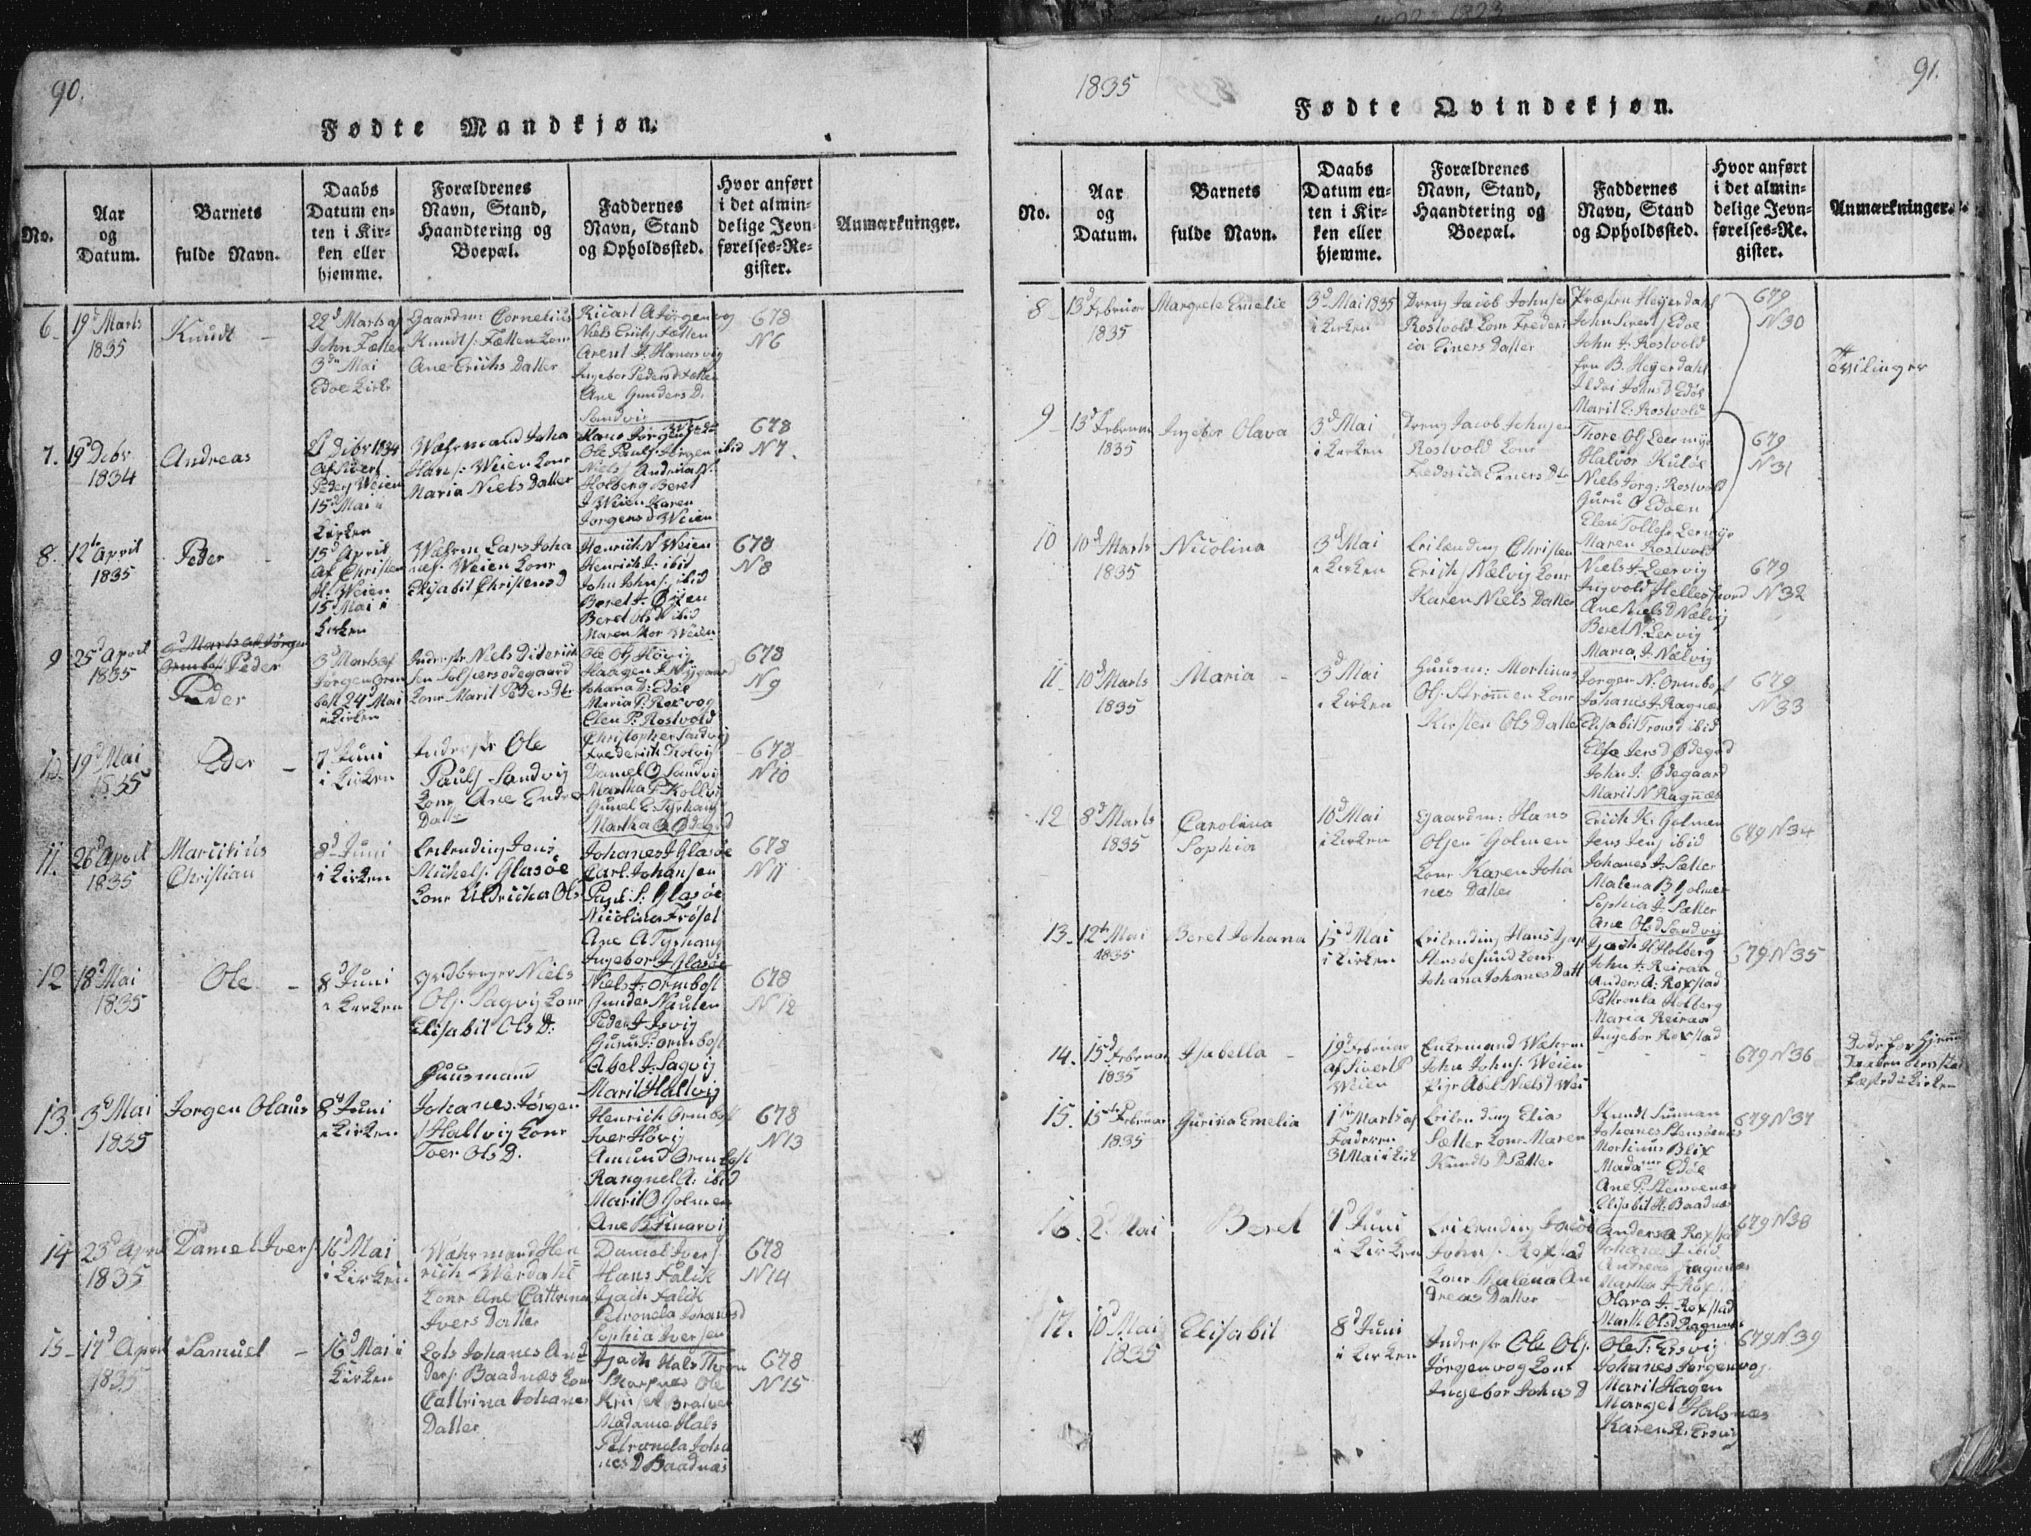 90.
Fødte Mandkjøn.
No.
Aar
og
Datum.
Barnets
fulde Navn.
Daabs
Datum en-
ten i Kir-
ken eller
hjemme.
Forældrenes
Navn, Stand,
Haandtering og
Boepæl.
Faddernes
Navn, Stand
og Opholdssted.
Hvor anført
i det almin-
delige Jevn-
førelses-Re-
gister.
Anmærkninger.
6
19d Marts
1835
Knudt
22d Marts af
John Fætten
3die Mai
Edoe Kirke
Gaardm: Cornelius
Knuds: Fætten Kone
Ane Erichs Datter
Ricart A Jørgenvog
Niels Erichs Fætten
Arent J. Hanasvig
Ingebor Peders d Fætten
Ane Gunders D.
Sandvig
678
N6
7.
19d Debr
1834
Andreas
Debr 1834
af Sivert
Peders Weien
15d Mai i
Kirken
Wahrmand Joha
Hans: Weien Kone
Maria Niels Datter
Hans Jørgens
Ole Pauls: Jørgen ibid
Niels Andreas N.
Holberg Beret
J Weien Karen
Jørgens d Weien
678
N7.
8.
12te April
1835
Peder
15d April
af Christen
H. Weien
15 Mai i
Kirken
Wæhrm Lars Joha
nes: Weien Kone
Elisabit Christens d
Henrich N Weien
Henrich J. ibid
John Johns: ibid
Beret J. Øien
Beret Ols N ibid
Maren Mor Weien
678
N8
9
25d April
1835
Peder
Peder
3d Marts af
Jørgen Orm
bost 24 Mai
i Kirken
Inderste Niels Diderich
sen Soljersødegaard
Kone Marit Peders Dtr
Ole Ols Høvig
Haagen J. Nygaard
Johana D: Edøe
Maria P: Roxvog
Elen P: Rostvold
678
N9
10
19d Mai
1835
Eder
7d Juni
i Kirken
Inderste Ole
Pauls Sandvig
Kone Ane Endre
Datte
Christopher Sandvig
Frederich Kolvig
Daniel O Sandvig
Martha P Kollvig
Gunel E: Tyrhaug
Martha O Ødegrd
678
N10
11.
26d April
1835
Maruitius
Christian
8d Juni
i Kirken
Leilending Jens
Michels: Glasøe
Kone Uldricha Ols
Johanes J Glasøe
Carl Johansen
Paul S: Glasøe
Nicolina Frøset
Ane A Tyrhaug
Ingebor J Glasøe
678
N11
12
18d Mai
1835
Ole
8d Juni
i Kirken
Grdbruger Niels
Ols: Sagvig Kone
Elisabit Ols D:
Niels J. Ormbost
Gunder Naulen
Peder J. Isvig
Guru P: Ormbost
Abel J. Sagvig
Marit Haltvig
678
N12
13
3d Mai
1835
Jorgen Olaus
8d Juni
i Kirken
Huusmand
Johanes. Jørgen
s Haltvig Kone
Toer Ols D.
Henrich Ormbost
Iver Høvig
Amund Ormbost
Rangnel A: ibid
Marit O Golmen
Ane B Kuarvi
678
N13
14
23d April
1835
Daniel Ivers
16d Mai
i Kirken
Wæhrmand Hen
rich Werdahl
Kone Ane Cattrina
Ivers Datter
Daniel Ivers:
Hans Falik
Isach Falik
Petronela Johanes d
Sophia Iversen
678
N14
15
17d April
1835
Samuel
16d Mai i
Kirken
Lots Johanes An
ders: Baadnæs Kone
Cattrina Johanes
Datter
Isach Hals Thorn
Ole
Kruses Bratvær
Madame Hals
Petronela Joha
nes D Baadnæs
678
N15
1835
91.
Fødte Qvindekjøn.
No.
Aar
og
Datum.
Barnets
fulde Navn.
Daabs
Datum en-
ten i Kir-
ken eller
hjemme.
Forældrenes
Navn, Stand,
Haandtering og
Boepæl.
Faddernes
Navn, Stand
og Opholdssted.
Hvor anført
i det almin-
delige Jevn-
førelses-Re-
gister.
Anmærkninger.
8
13d Februar
1835
Margrete Emelie
3d Mai 1835
i Kirken
Dreng Jacob Johnsen
Rostvold Kone Frederi
cia Einers Datter
Præsten Heyerdahl
John Sivert: Edøe
John J. Rostvold
Fru B. Heyerdahl
Ildri Johns D Edøe
Marit E: Rostvold
679
N30
Tvilinger
9
13d Februar
1835
Ingebor Olava
3d Mai
i Kirken
Dreng Jacob Johnsen
Rostvold Kone
Frederica Einers Dtr
Thore Ols Leervig
Halvor Kuløe
Niels Jorg: Rostvold
Guru O Edøen
Elen Tollefs Lervig
Maren Rostvold
679
N31
10
10d Marts
1835
Nicolina
3d Mai
i Kirken
Leilending Christen
Erichs Nælvig Kone
Karen Niels Datter
Niels J. Leervig
Ingvold Hellesfiord
Ane Niels d Nælvig
Beret N. Lervig
Maria J. Nælvig
679
N32
11
10d Marts
1835
Maria
3d Mai
i Kirken
Huusm: Mortinus
Ols: Strømmen Kone
Kirsten Ols Datter
Jorgen N. Ormbost
Johanes J. Ragnæs
Elisabit Trons d ibid
Else Jens d Ødegrd
John J: Ødegaard
Marit N Ragnæs
679
N33
12
8d Marts
1835
Carolina
Sophia
10d Mai
i Kirken
Gaardm: Hans
Olsen Golmen
Kone Karen Joha
nes Datter
Erich K: Golmen
Jens Jens: ibid
Johanes J. Sætter
Malena B Golmen
Sophia J. Sætter
Ane Ols d Sandvig
679 N34
13
12te Mai
1835
Beret Johana
15d Mai
i Kirken
Leilending Hans Isach
Stensøesund Kone
Johana Johanes Datt
Isach H Holberg
John J. Reiraa
Anders A: Roxstad
Petronela Holberg
Maria Reiraa
Ingebor Roxstad
679 N35
14.
15d Februar
1835
Isabella
19d Februar
af Sivert P
Weien
Enkemand Wæhrm
John Johns: Weien
Pige Abel Niels d Wei
679 N36
Døde før Hjemme
Daaben blev stad
fæsted i Kirken
15.
15te Februar
1835
Gurina Emelia
1ste Marts af
Faderen
31 Mai i Kirk
Leilending Elias
Sætter Kone Maren
Knudts D Sætter
Knudt Sunnan
Johanes Stensønæs
Mortinus Blix
Madame Edøe
Ane P: Stensoenæs
Elisabit H: Baadnæs
679 N37
16
2d Mai
Beret
7d Juni
i Kirken
Leilending Jacob
Johns: Roxstad
Kone Malena An
dreas Datter
Anders A Roxstad
Johanes J. ibid
Andreas Ragnnæs
Martha J. Rox
Olara J. Roxstad
Marth Ols d Ragnnæs
679 N38
17.
10d Mai
1835
Elisabit
8d Juni
i Kirken
Inderste Ole Ols:
Jørgenvog Kone
Ingebor Johns D
Ole T: Ersvig
Johanes Jorgenvog
Marit Hagen
Margel Halsnæs
Karen R. Ersvig
679 N39